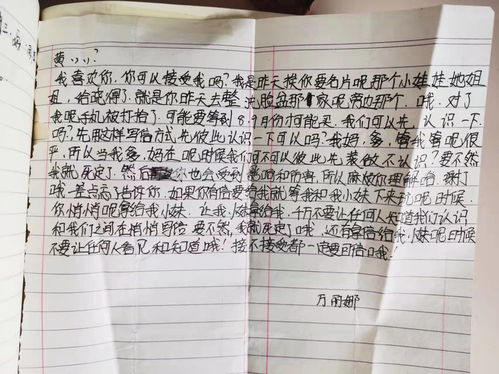 黄小小?
我喜欢你,你可以接受我吗?我是昨天挨你要名片呢那个小娃娃她姐
姐,给晓得了,就是你昨天去整洗脸盆那家呢旁边那个。哦,对了
我呢手机被打掐了,可能要等到8.9月份才可能买,我们可以先认识一下
吗?先用这样写信方式先彼此认识一下可以吗?我妈,爹,管我管呢很
严,所以当我爹,妈在呢时候我们可不可以彼此先装做不认识?要不然
我就死定了,然后你也会受到影响和伤害,所以麻烦你理解哈,谢了
哦。差点忘了告诉你,如果你有信要给我就等我和我小妹下来玩呢时候
你悄悄呢拿给我小妹,让我小妹拿给我,千万不要让任何人知道我们认识
和我们之间在悄悄写信,要不然,我就死定了哦,还有拿信给我小妹呢时候
不要让任何人看见和知道哦!接不接受都一定要回信哦!
万雨娜